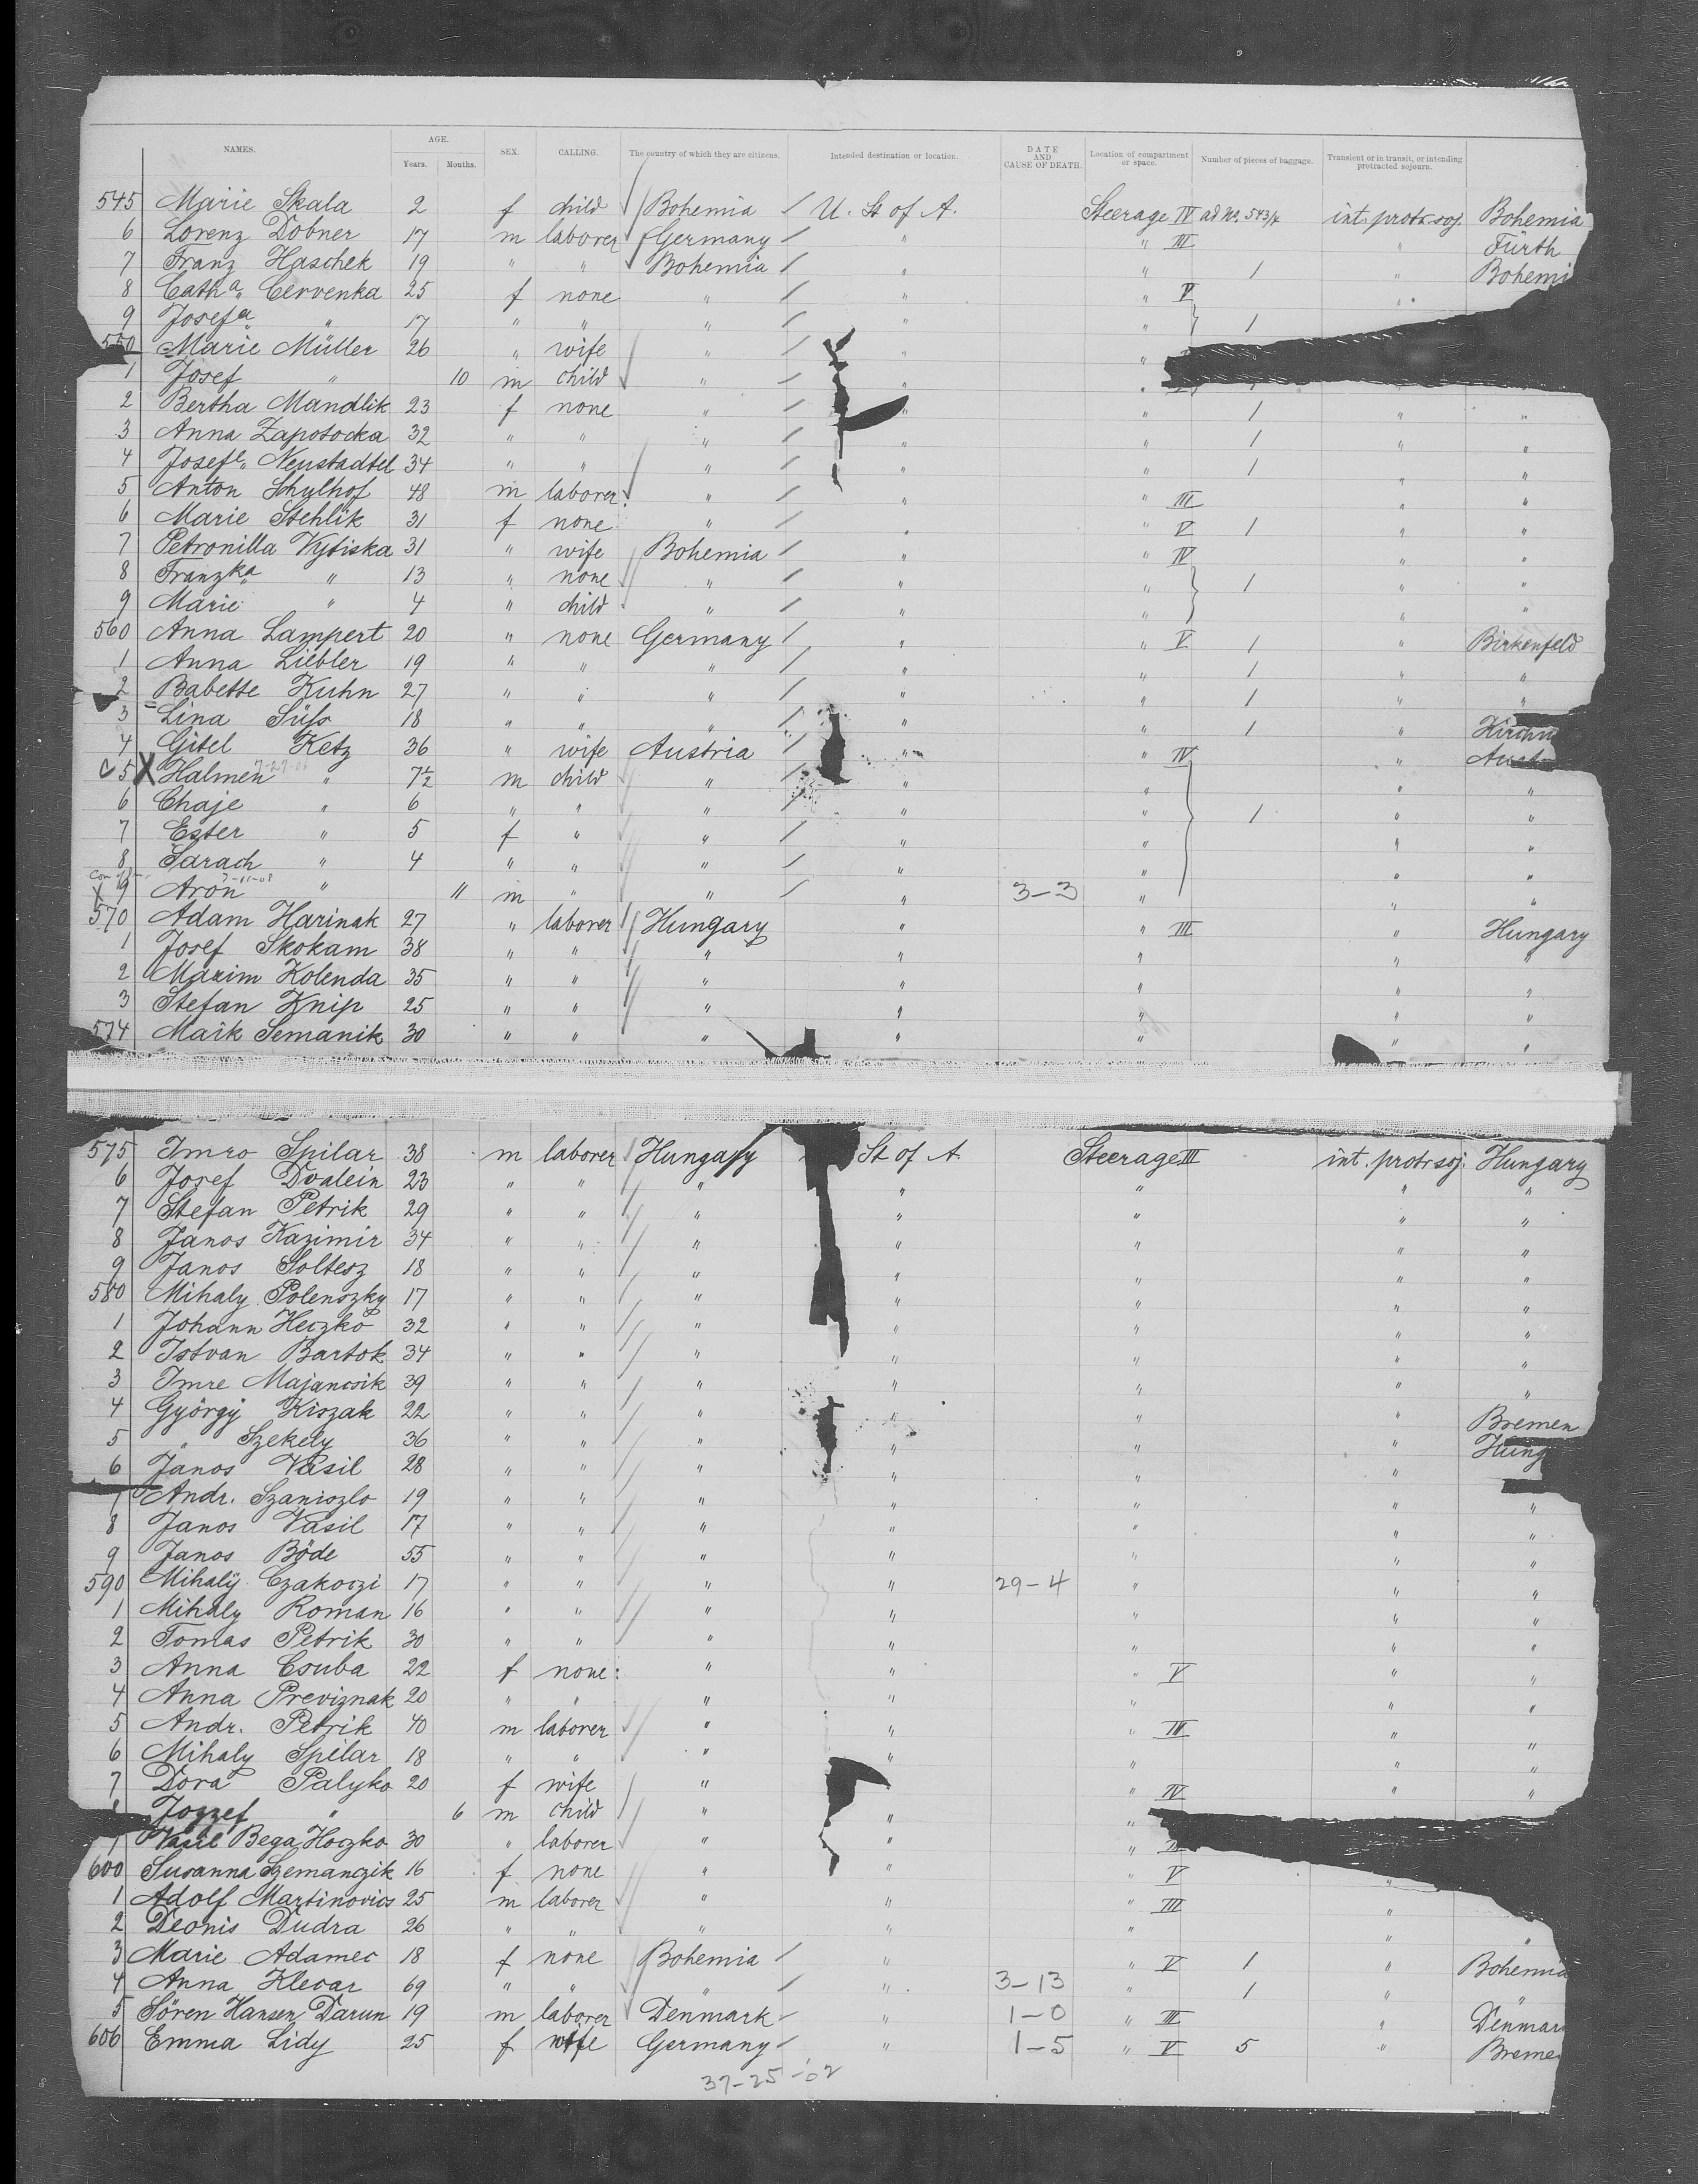 NAMES. AGE. Years. Months. SEX. CALLING. The country of which they are citizens. Intended destination or location. DATE AND CAUSE OF DEATH. Location of compartment or space. Number of pieces of baggage. Transient or in transit, or intending protracted sojourn.
545 Marie Skala 2 f child Bohemia U. St of A. Steerage IV ad No. 543/4 int. protr. soj. Bohemia
6 Lorenz Dobner 17 m laborer Germany " " III " Fürth
7 Franz Haschek 19 " " Bohemia " " 1 " Bohemi
8 Catha. Cervenka 25 f none " " " V "
9 Josefa " 17 " " " " " 1
550 Marie Müller 26 " wife " " "
1 Josef " 10 m child " " "
2 Bertha Mandlik 23 f none " " " 1 " "
3 Anna Zapotocka 32 " " " " " 1 " "
4 Josefe. Neustadtel 34 " " " " " 1 " "
5 Anton Schulhof 48 m laborer " " " III " "
6 Marie Stehlik 31 f none " " " V 1 " "
7 Petronilla Vytiska 31 " wife Bohemia " " IV " "
8 Franzka " 13 " none " " " 1 " "
9 Marie " 4 " child " " " " "
560 Anna Lampert 20 " none Germany " " V 1 " Birkenfeld
1 Anna Liebler 19 " " " " " 1 " "
2 Babette Kuhn 27 " " " " " 1 " "
3 Lina Süß 18 " " " " " 1 "
4 Gitel Ketz 36 " wife Austria " " IV "
5 X Halmen " 7½ m child " " " " "
6 Chaje " 6 " " " " " 1 " "
7 Ester " 5 f " " " " " "
8 Sarach " 4 " " " " " " "
X 9 Aron " 11 m " " " 3-3 " " "
570 Adam Harinak 27 " laborer Hungary " " III " Hungary
1 Josef Skokam 38 " " " " " " "
2 Maxim Kolenda 35 " " " " " " "
3 Stefan Knip 25 " " " " " " "
574 Maik Semanik 30 " " " " " " "
575 Imro Spilar 38 m laborer Hungary St of A. Steerage III int. protr soj. Hungary
6 Josef Dvalein 23 " " " " " " "
7 Stefan Petrik 29 " " " " " " "
8 Janos Kazimir 34 " " " " " " "
9 Janos Soltesz 18 " " " " " " "
580 Mihaly Polenszky 17 " " " " " " "
1 Johann Heczko 32 " " " " " " "
2 Istvan Bartok 34 " " " " " " "
3 Imre Majancsik 39 " " " " " " "
4 György Kiszak 22 " " " " " " Bremen
5 " Szekely 36 " " " " " " Hung
6 Janos Vasil 28 " " " " " "
7 Andr. Szaniszlo 19 " " " " " " "
8 Janos Vasil 17 " " " " " " "
9 Janos Böde 55 " " " " " " "
590 Mihaly Czakoczi 17 " " " " 29-4 " " "
1 Mihaly Roman 16 " " " " " " "
2 Tomas Petrik 30 " " " " " " "
3 Anna Csuba 22 f none " " " V " "
4 Anna Previznak 20 " " " " " " "
5 Andr. Petrik 40 m laborer " " " III " "
6 Mihaly Spilar 18 " " " " " " "
7 Dora Palyko 20 f wife " " " IV " "
8 Jozzef " 6 m child " " "
Vasil Bega Hoczko 30 " laborer " " "
600 Susanna Szemanczik 16 f none " " " V "
1 Adolf Martinovics 25 m laborer " " " III "
2 Deonis Dudra 26 " " " " " " "
3 Marie Adamec 18 f none Bohemia " " V 1 " Bohemia
4 Anna Klecar 69 " " " " 3-13 " 1 " "
5 Sören Hansen Darun 19 m laborer Denmark " 1-0 " III " Denmar
606 Emma Lidy 25 f wife Germany " 1-5 " V 5 " Breme
37-25-02